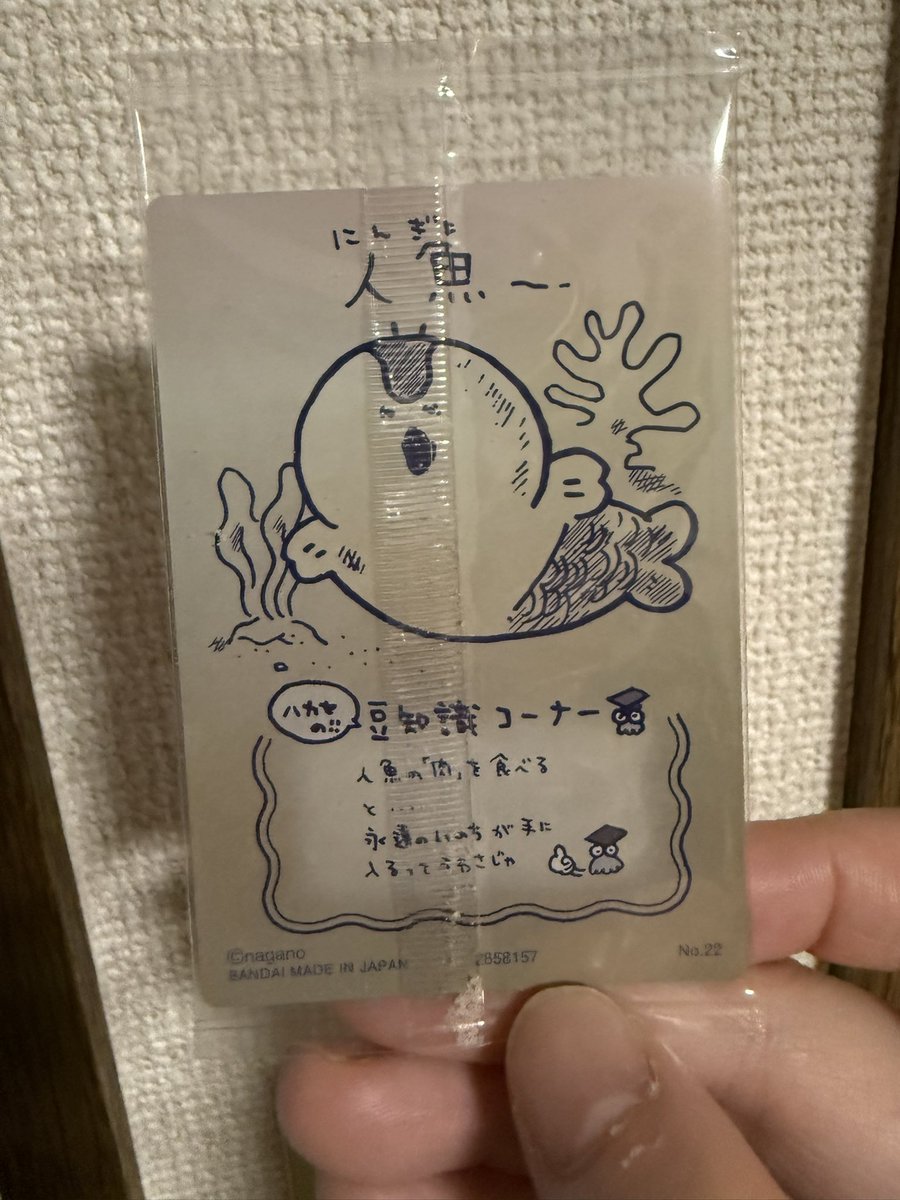 にんぎょ
人魚〜‥
ハカセの!!
豆知識コーナー
人魚の「肉」を食べる
と……
永遠のいのちが手に
入るってうわさじゃ
©nagano
BANDAI MADE IN JAPAN
2858157
No.22